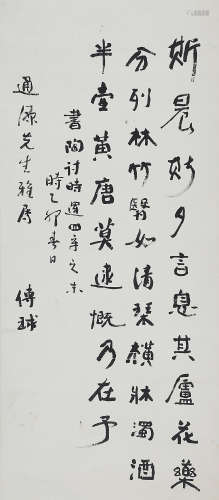 斯晨斯夕言息其廬花藥
分列林竹翳如清琴橫牀濁酒
半壺黃唐莫逮慨乃在予
書陶詩時運四章之末
時乙卯春日
通源先生雅屬 傅球